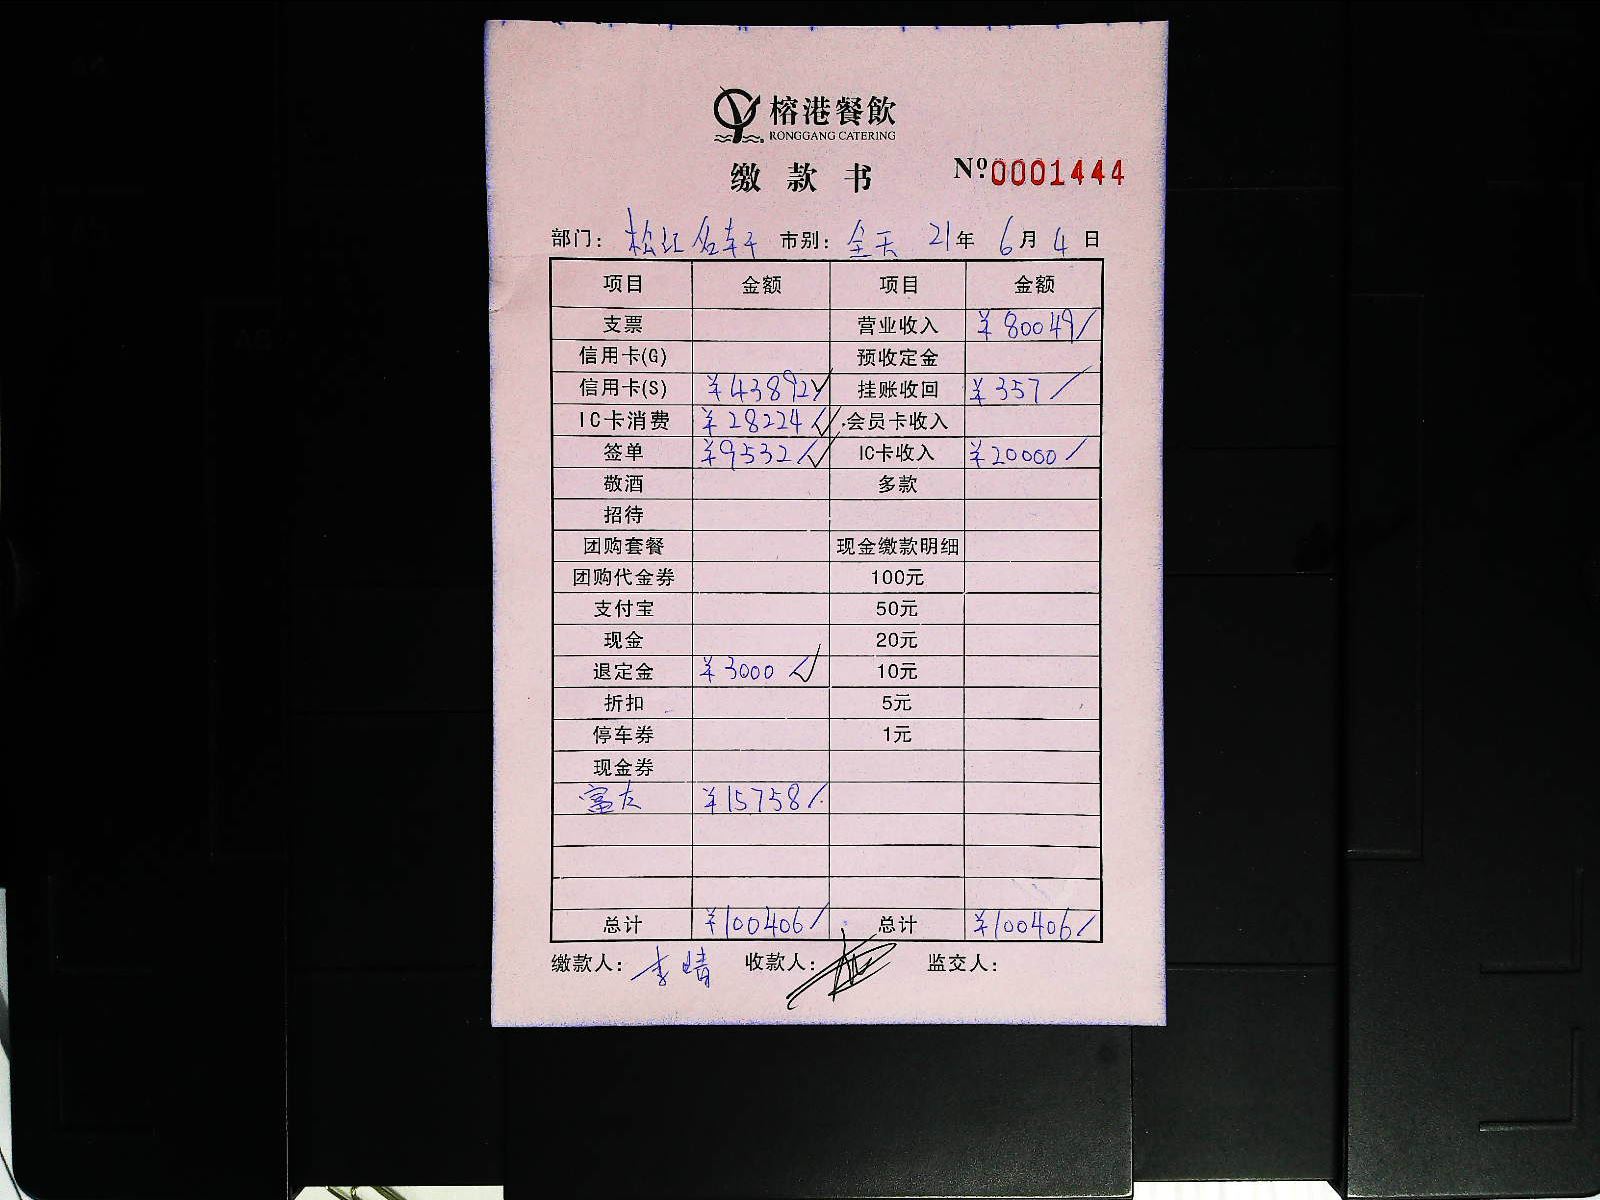 榕港餐飲
RONGGANG CATERING
缴款书 №0001444
部门: 松江名轩 市别: 全天 21年 6月 4日
项目 金额 项目 金额
支票 营业收入 ¥80049/
信用卡(G) 预收定金
信用卡(S) ¥43892√ 挂账收回 ¥357/
IC卡消费 ¥28224/√ 会员卡收入
签单 ¥9532/√ IC卡收入 ¥20000/
敬酒 多款
招待
团购套餐 现金缴款明细
团购代金券 100元
支付宝 50元
现金 20元
退定金 ¥3000/√ 10元
折扣 5元
停车券 1元
现金券
富友 ¥15758/
总计 ¥100406/ 总计 ¥100406/
缴款人: 李晴 收款人: 监交人: